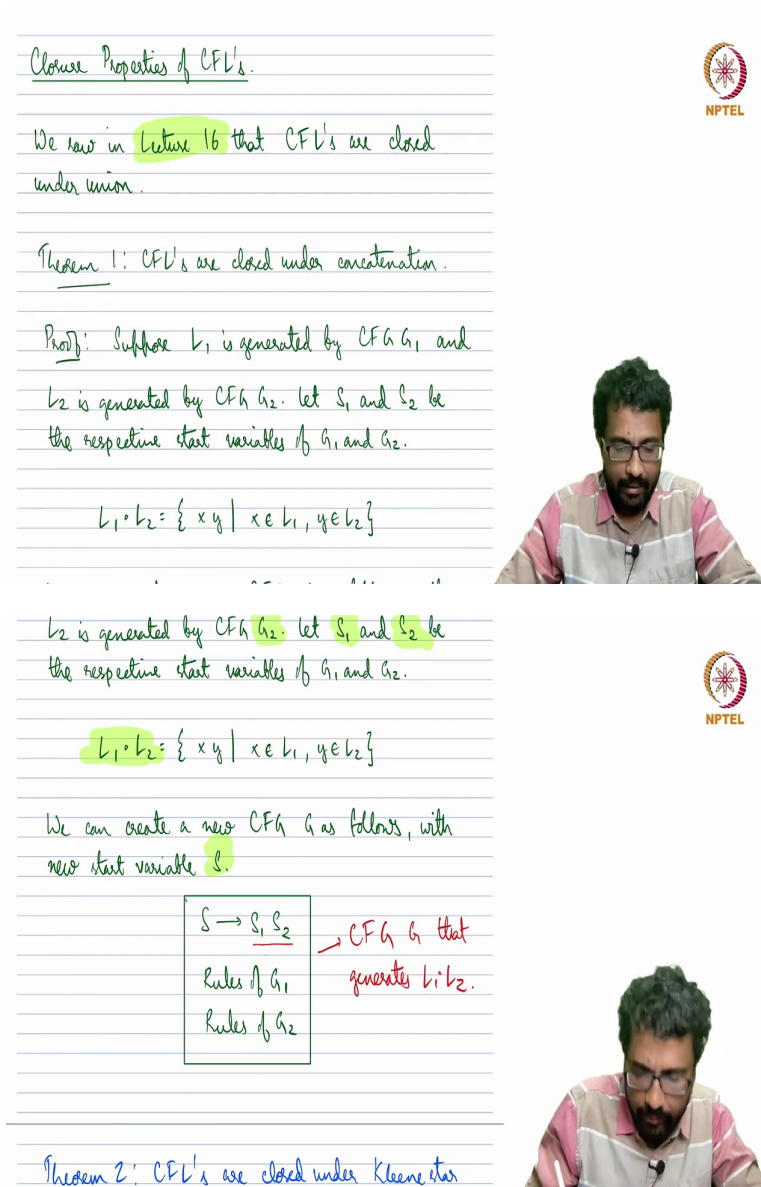 Closure Properties of CFL's.
NPTEL
We saw in Lecture 16 that CFL's are closed
under union.
Theorem 1: CFL's are closed under concatenation.
Proof: Suppose L₁ is generated by CFG G₁ and
L₂ is generated by CFG G₂. Let S₁ and S₂ be
the respective start variables of G₁ and G₂.
L₁∘L₂ = { xy | x ∈ L₁, y ∈ L₂ }
L₂ is generated by CFG G₂. Let S₁ and S₂ be
the respective start variables of G₁ and G₂.
NPTEL
L₁∘L₂ = { xy | x ∈ L₁, y ∈ L₂ }
We can create a new CFG G as follows, with
new start variable S.
S → S₁ S₂
Rules of G₁
Rules of G₂
→ CFG G that
generates L₁∘L₂.
Theorem 2: CFL's are closed under Kleene star